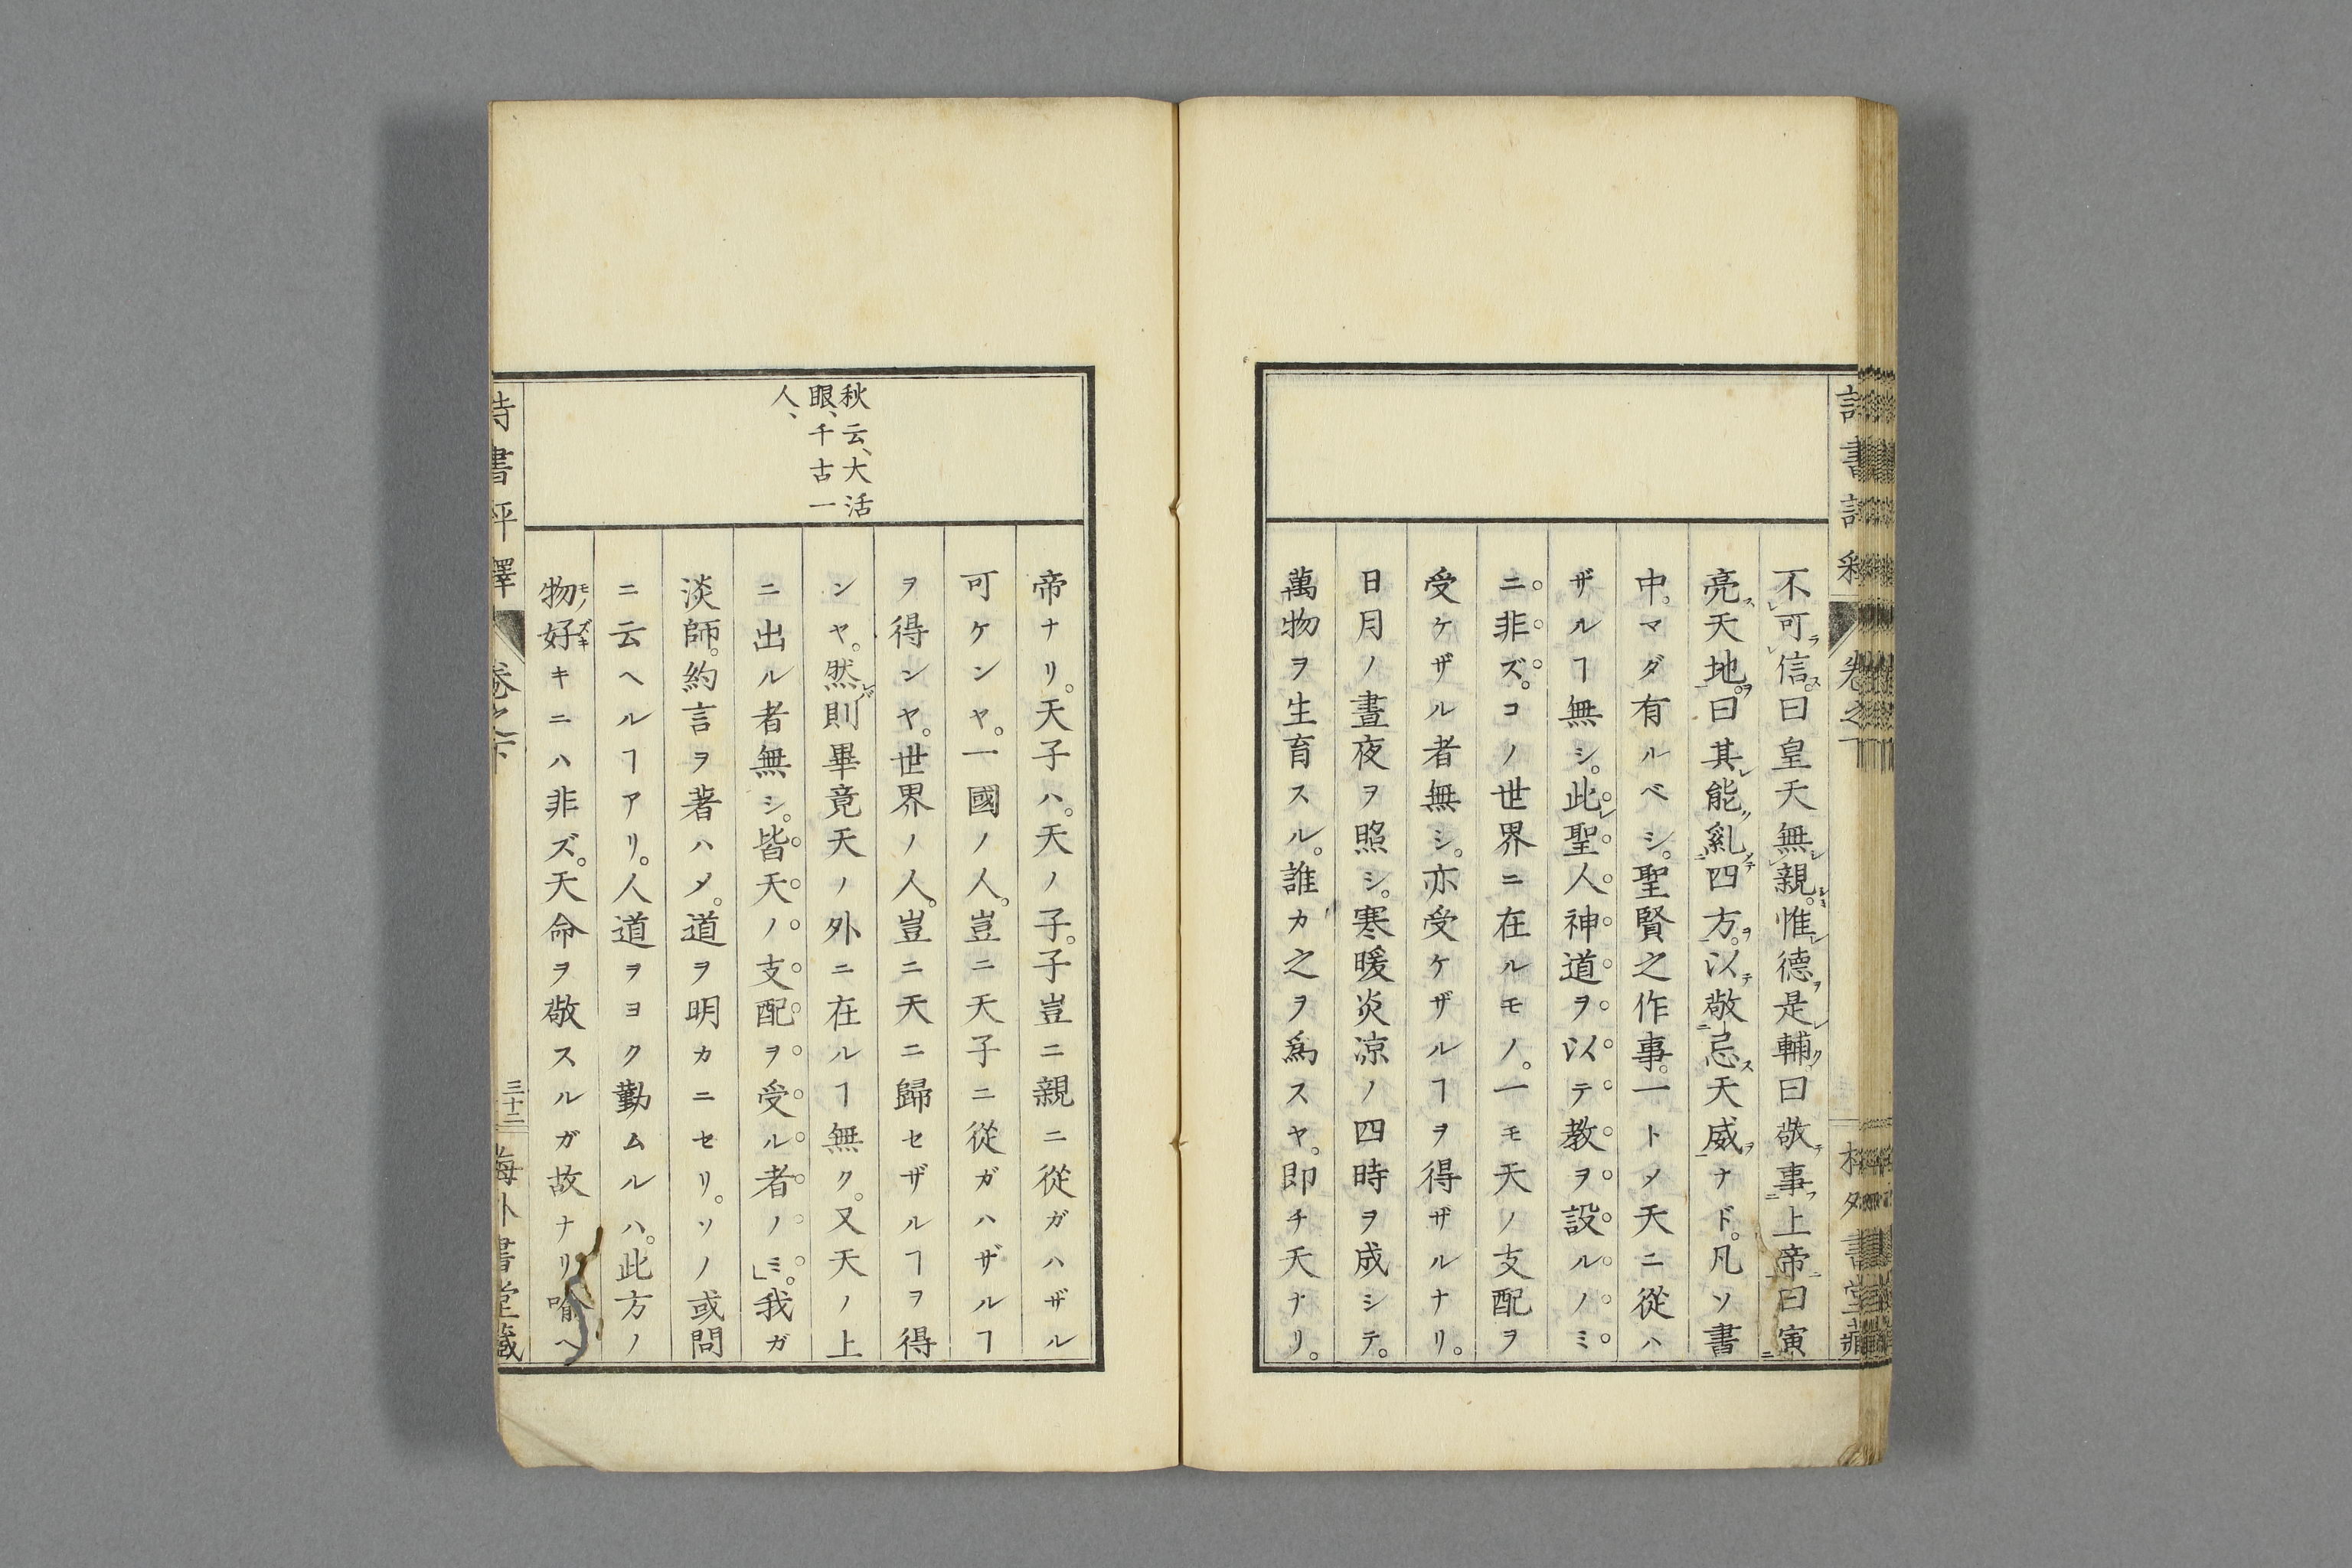 不可信。曰皇天無親。惟德是輔曰敬事上帝曰寅
亮天地。曰其能亂四方。以敬忌天威ナド。凡ソ書
中。マダ有ルベシ。聖賢之作事。一トメ天ニ從ハ
ザルヿ無シ。此聖人神道ヲ以テ教ヲ設ルノミ
ニ非ズ。コノ世界ニ在ルモノ。一モ天ノ支配ヲ
受ケザル者無シ。亦受ケザルヿヲ得ザルナリ。
日月ノ晝夜ヲ照シ。寒暖炎凉ノ四時ヲ成シテ。
萬物ヲ生育スル。誰カ之ヲ爲スヤ。即チ天ナリ。
秋云、大活
眼、千古一
人、
帝ナリ。天子ハ。天ノ子。子豈ニ親ニ從ガハザル
可ケンヤ。一國ノ人。豈ニ天子ニ從ガハザルヿ
ヲ得ンヤ。世界ノ人。豈ニ天ニ歸セザルヿヲ得
ンヤ。然則畢竟天ノ外ニ在ルヿ無ク。又天ノ上
ニ出ル者無シ。皆天ノ支配ヲ受ル者ノミ。」我ガ
淡師。約言ヲ著ハメ。道ヲ明カニセリ。ソノ或問
ニ云ヘルヿアリ。人道ヲヨク勤ムルハ。此方ノ
物好キニハ非ズ。天命ヲ敬スルガ故ナリ喩ヘ
詩書評釋
卷之下
三十二
梅外書堂藏